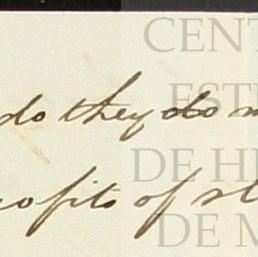 CENT
do they do
EST
DE HI
rofits of sl
DE M